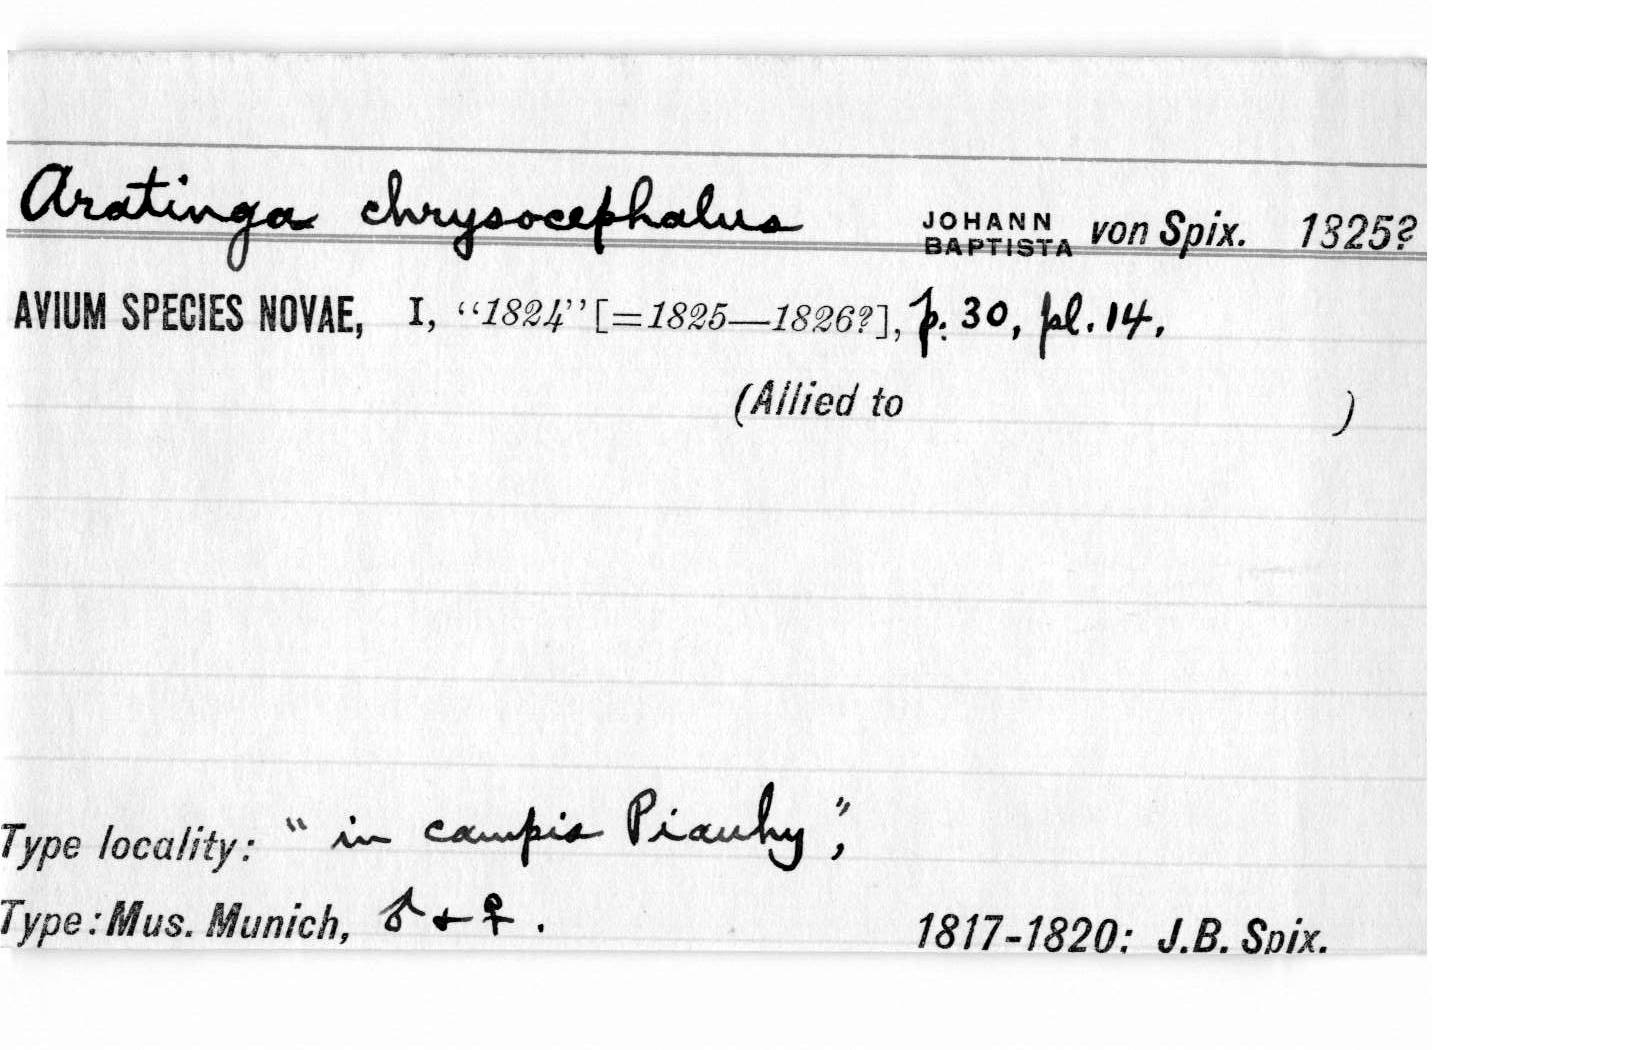 Aratinga chrysocephalus JOHANN BAPTISTA von Spix. 1825?
AVIUM SPECIES NOVAE, I, “1824” [=1825—1826?], p. 30, pl. 14.
(Allied to )
Type locality: " in campis Piauhy",
Type: Mus. Munich, ♂ + ♀. 1817-1820: J.B. Spix.